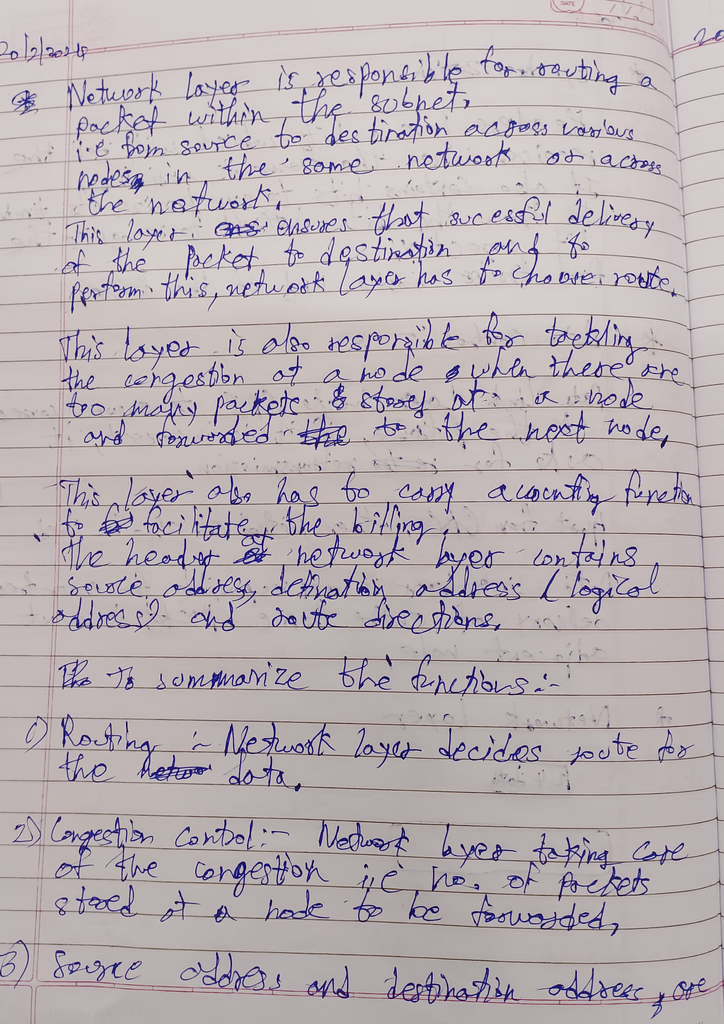 DATE
20/2/2024
* Network layer is responsible for routing a
packet within the subnet,
i.e from source to destination across various
nodes, in the same network or across
the network.
This layer ensures that sucessful delivery
of the packet to destination and to
perform this, network layer has to choose route.
This layer is also responsible for tackling
the congestion at a node when there are
too many packets stored at a node
and forwarded to the next node,
This layer also has to carry accounting function
to facilitate the billing.
The header of network layer contains
source address, destination address (logical
address) and route directions.
To summarize the functions:-
1) Routing :- Network layer decides route for
the data.
2) Congestion control:- Network layer taking care
of the congestion i.e no. of packets
stored at a node to be forwarded,
3) Source address and destination address, are